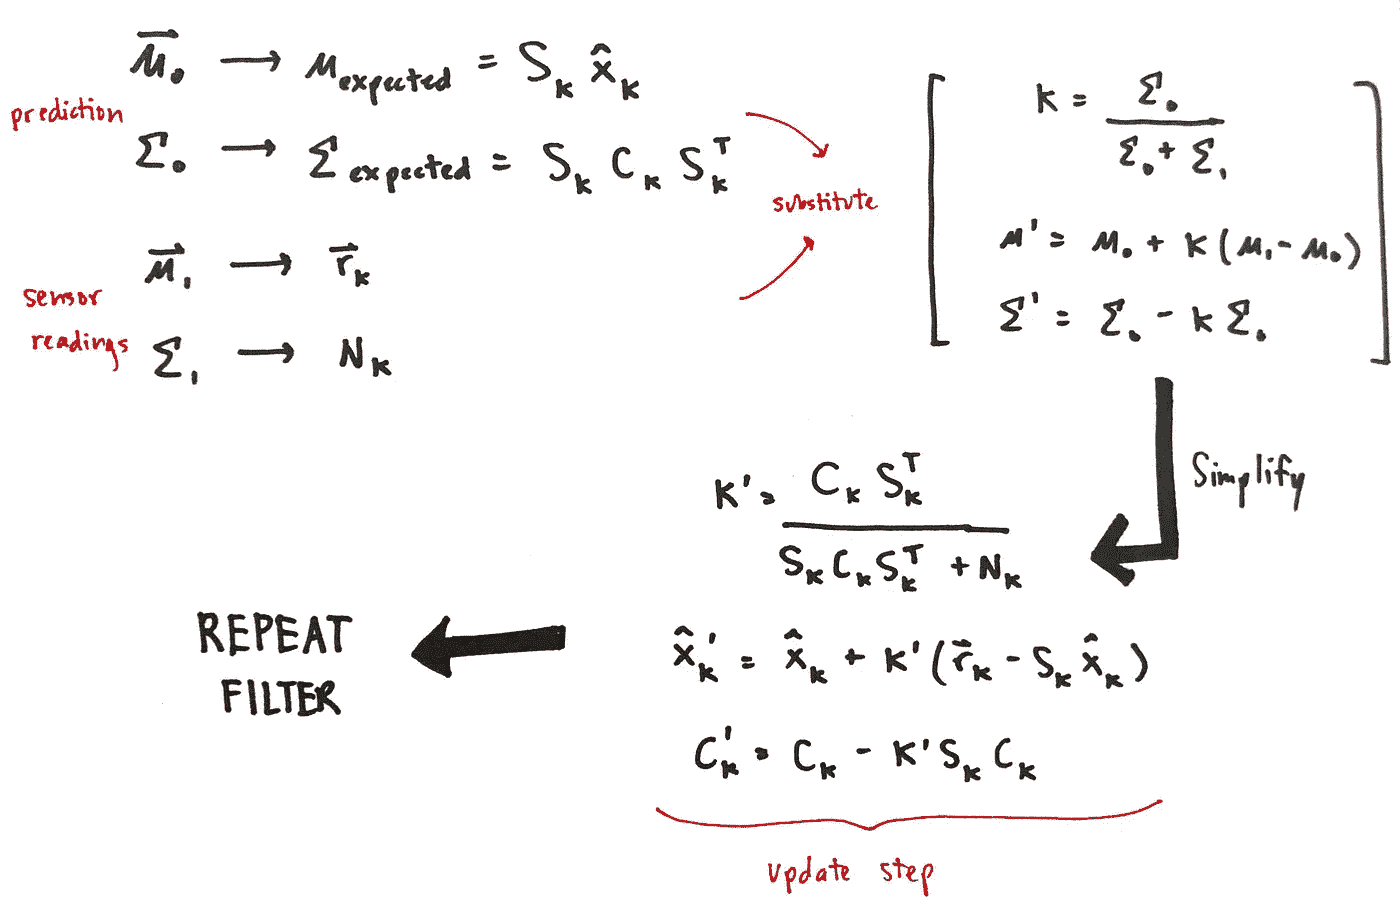 μ⃗₀ → μ_expected = S_k x̂_k
prediction
Σ₀ → Σ_expected = S_k C_k S_k^T
μ⃗₁ → r⃗_k
sensor
readings
Σ₁ → N_k
substitute
K = Σ₀ / (Σ₀ + Σ₁)
μ' = μ₀ + K(μ₁ - μ₀)
Σ' = Σ₀ - K Σ₀
Simplify
K' = C_k S_k^T / (S_k C_k S_k^T + N_k)
x̂_k' = x̂_k + K'(r⃗_k - S_k x̂_k)
C_k' = C_k - K' S_k C_k
update step
REPEAT
FILTER